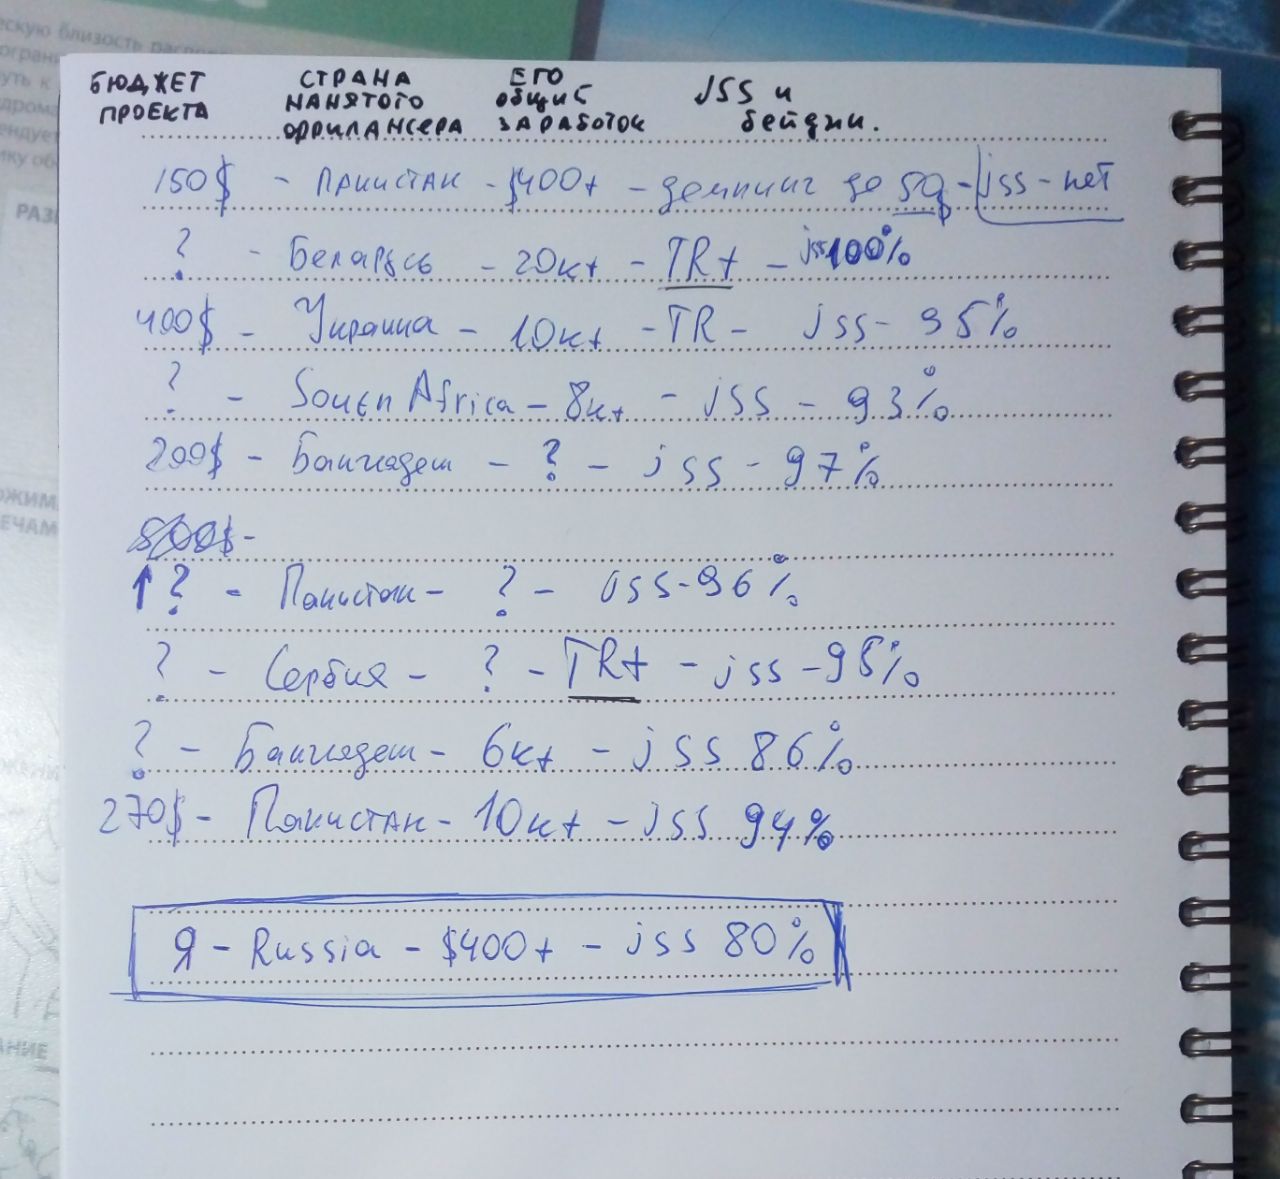 БЮДЖЕТ ПРОЕКТА СТРАНА НАНЯТОГО ФРИЛАНСЕРА ЕГО общий ЗАРАБОТОК JSS и бейджи.
150$ - Пакистан - $400+ - демпинг до 50$ - jss - нет
? - Беларусь - 20к+ - TR+ - jss 100%
400$ - Украина - 10к+ - TR - jss - 95%
? - South Africa - 8к+ - jss - 93%
200$ - Бангладеш - ? - jss - 97%
↑? - Пакистан - ? - jss - 96%
? - Сербия - ? - TR+ - jss - 95%
? - Бангладеш - 6к+ - jss 86%
270$ - Пакистан - 10к+ - jss 94%
Я - Russia - $400+ - jss 80%
РАЗ
ЕЧАМ
АНИЕ